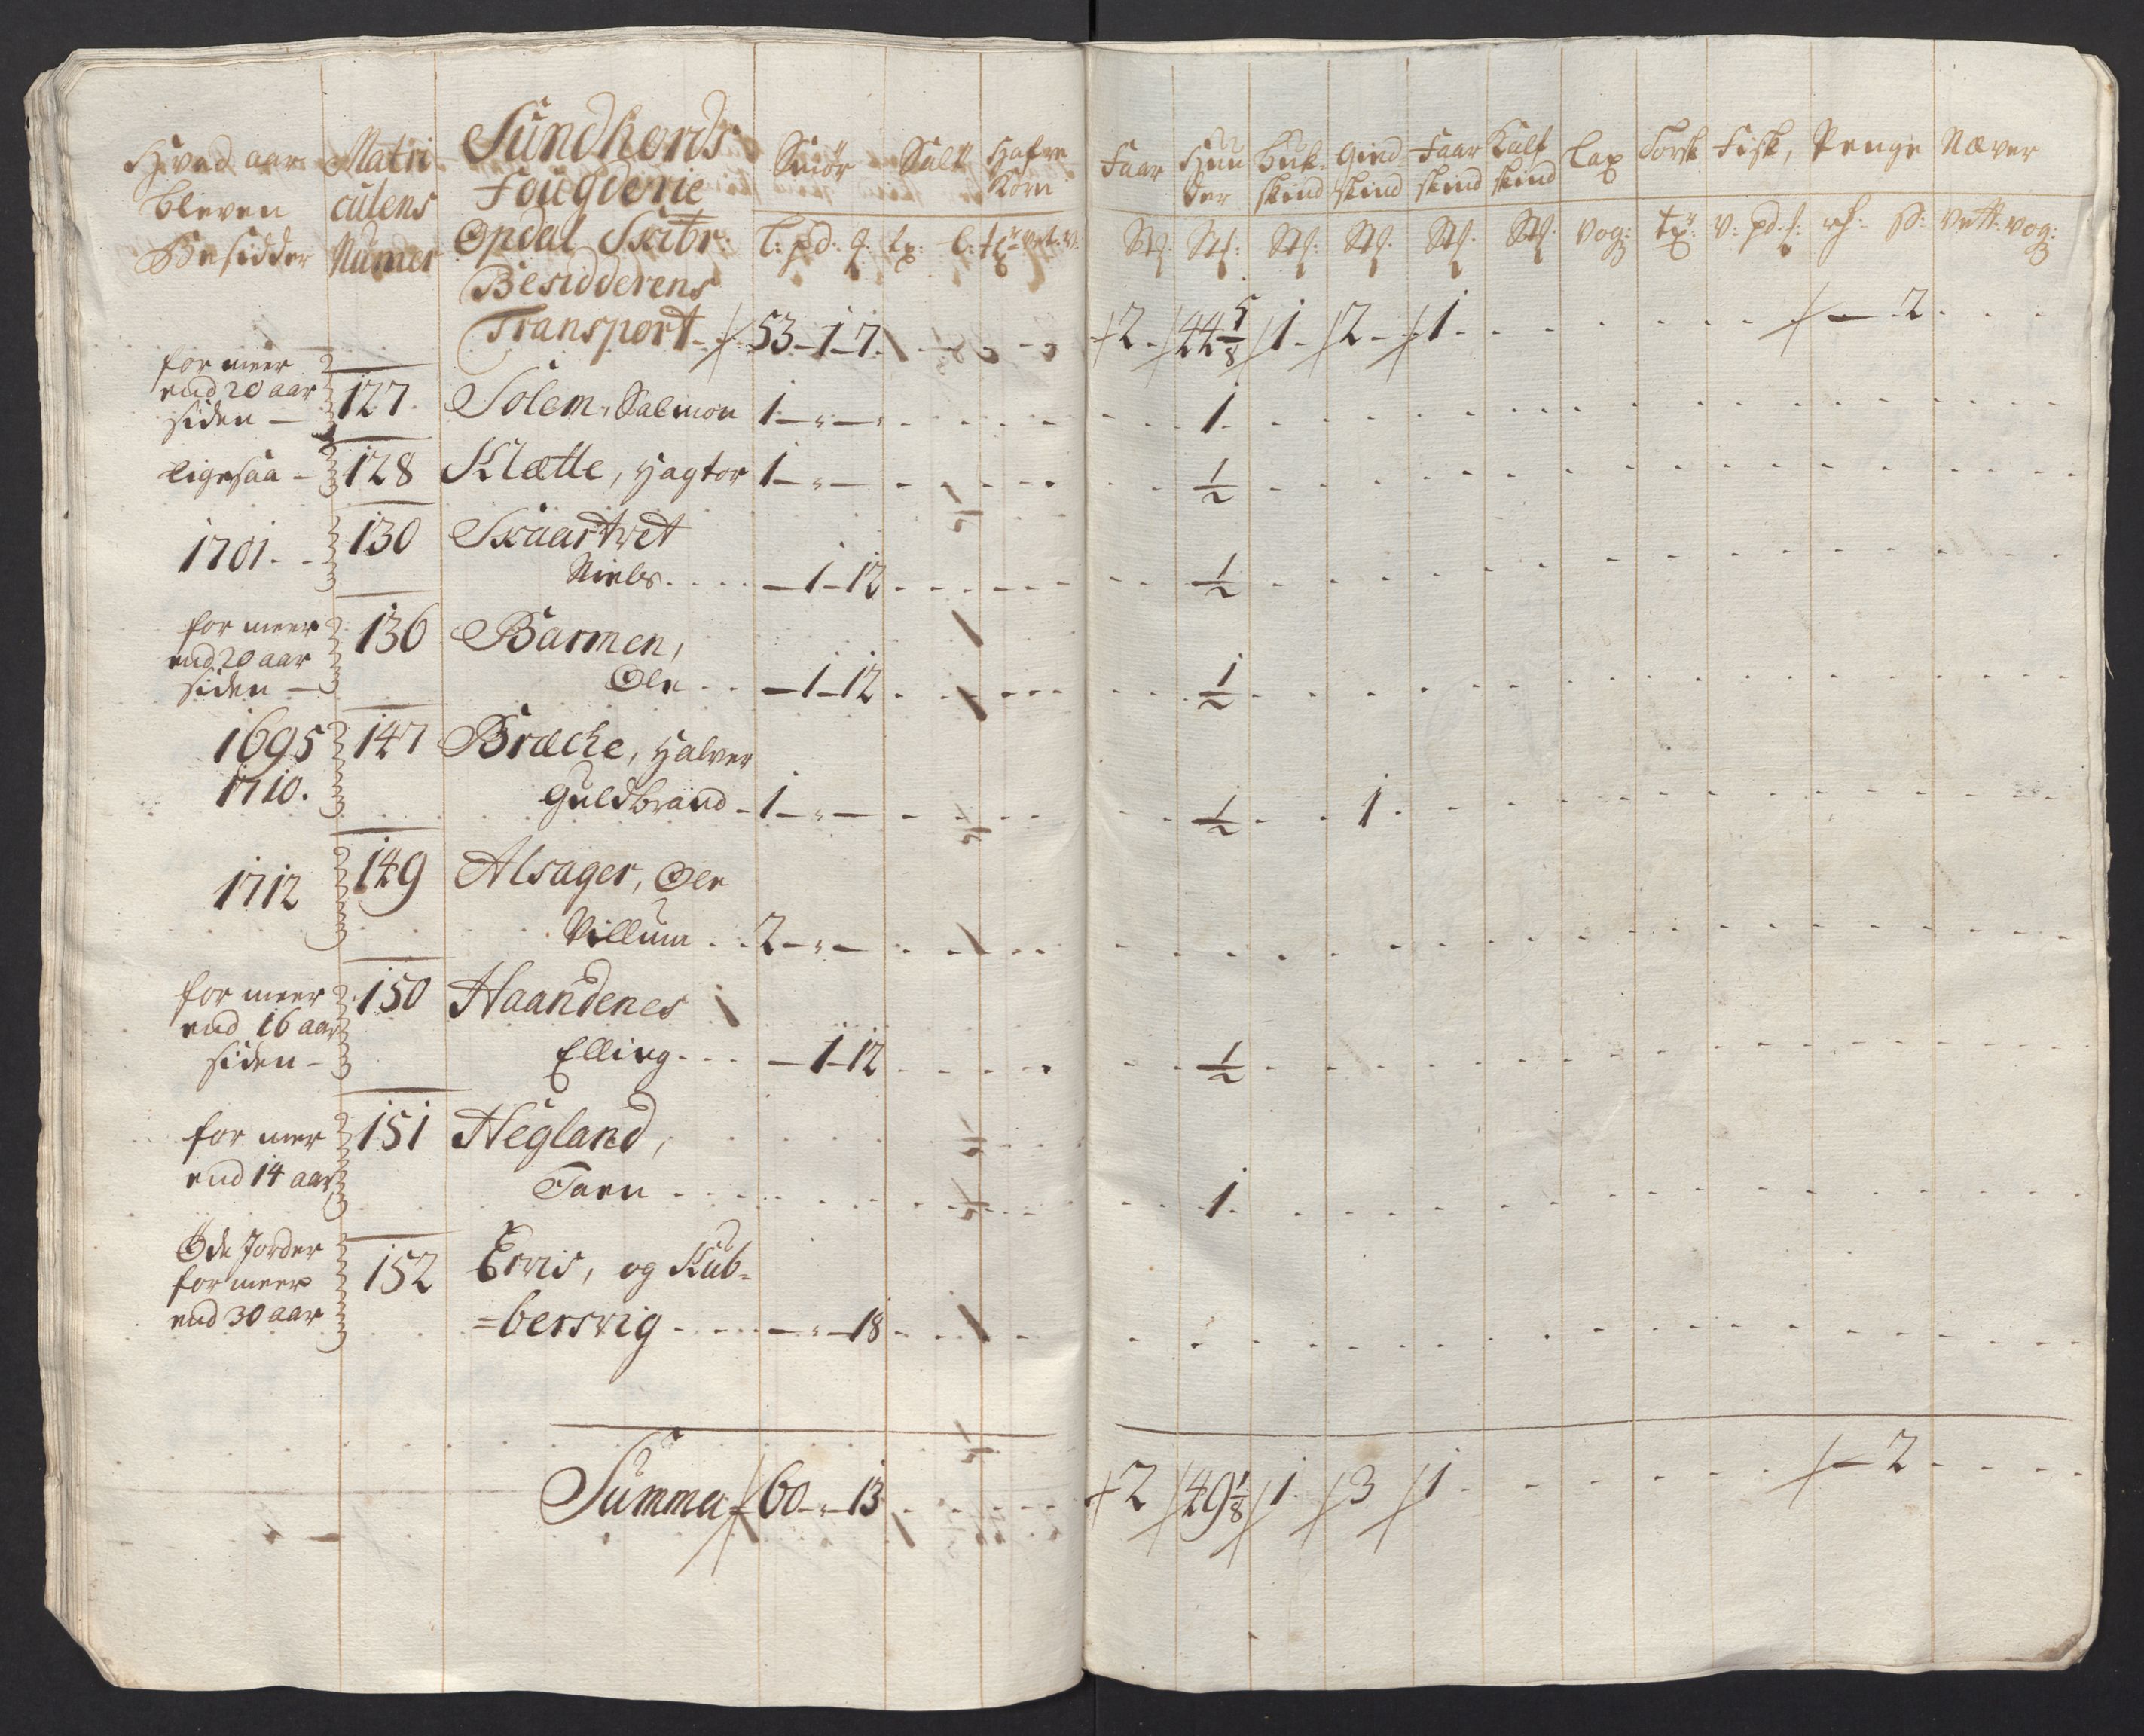 Hvad aar bleven Besidder | Matriculens Numer | Sundhords Fougderie Opdal Skibr: Besidderens | Smör L: pd: | Salt tx: | Hafre Korn | Faar Stk: | Huuder Stk: | Buk skind Stk: | Gied skind Stk: | Faar skind Stk: | Kalf skind Stk: | Lax Vog: | Torsk tx: | Fisk, V: pd: | Penge | Næver Vett: Vog:
Transport 53 - 1 - 7 | 2 | 44 5/8 | 1 | 2 | 1 | — 2
for meer
end 20 aar
siden — 127 Solem, Salmon 1 - " - | 1
ligesaa - 128 Klætte, Hagtor 1 - " - | 1/2
1701 130 Skaartvet
Niels - 1 - 12 | 1/2
for meer
end 20 aar
siden — 136 Barmen,
Ole - 1 - 12 | 1/2
1695 147 Bræche, Halver
1710. Guldbrand - 1 - " - | 1/2 | 1
1712 149 Alsager, Ole
Villum 2 - " -
for meer
end 16 aar
siden - 150 Haandenes
Elling - 1 - 12 | 1/2
for mer
end 14 aar 151 Hegland,
| 1
Öde Jorder
for meer
end 30 aar 152 Ervis, og Kub=
=bersvig - " - 18
Summa 60 - " - 13 | 2 | 49 1/8 | 1 | 3 | 1 | — 2